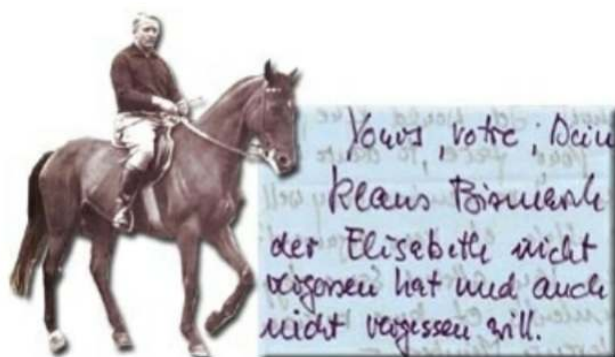 Yours, votre, Dein
Klaus Bismarck
der Elisabeth nicht
vergessen hat und auch
nicht vergessen will.